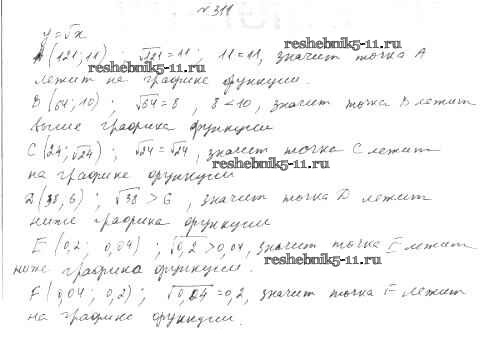 № 311
y=√x
A (121; 11) ; √121 = 11 ; 11 = 11, значит точка A
лежит на графике функции.
B (64; 10) ; √64 = 8 , 8 < 10, значит точка B лежит
выше графика функции
C (24; √24) ; √24 = √24, значит точка C лежит
на графике функции
D (38, 6) ; √38 > 6 , значит точка D лежит
ниже графика функции
E (0,2; 0,04) ; √0,2 > 0,04, значит точка E лежит
ниже графика функции.
F (0,04; 0,2) ; √0,04 = 0,2, значит точка F лежит
на графике функции.
reshebnik5-11.ru
reshebnik5-11.ru
reshebnik5-11.ru
reshebnik5-11.ru